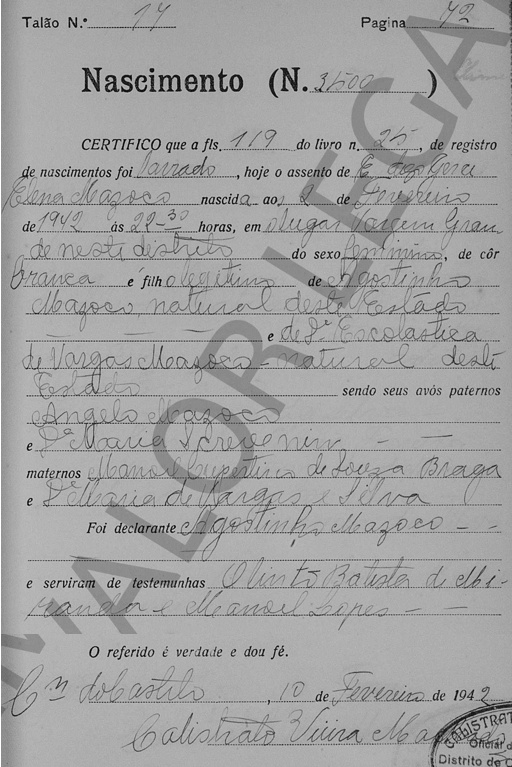 Talão N.º 17 Pagina 72
Nascimento (N. 3500 )
CERTIFICO que a fls. 119 do livro n. 25, de registro
de nascimentos foi Lavrado, hoje o assento de
Elena Mazoco nascida aos 2 de Fevereiro
de 1942 ás 22-30 horas, em o lugar Vargem Gran
de neste distrito do sexo feminino, de côr
branca e filh o legitimo de Agostinho
Mazoco, natural deste Estado
e de Dª Escolastica
de Vargas Mazoco - natural deste
Estado sendo seus avós paternos
Angelo Mazoco
e Dª Maria
maternos Manoel Cupertino de Souza Braga
e Dª Maria de Vargas e Silva
Foi declarante Agostinho Mazoco - -
e serviram de testemunhas Olinto Batista de Mi-
randa e Manoel Lopes - -
O referido é verdade e dou fé.
do Castelo, 10 de Fevereiro de 1942
Calistrato Vieira
Oficial d
Distrito de
MALOR LEGAL